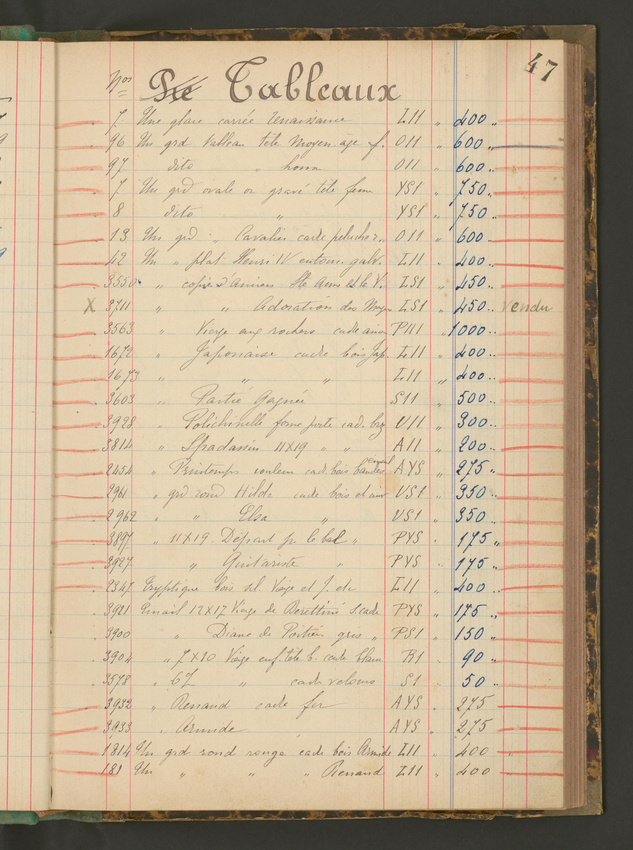 47
Nos Tableaux
7 Une glace carrée renaissance I11 " 400 "
96 Un grd tableau tete moyen age f. O11 " 600 "
97 dito " hom O11 " 600 "
7 Un grd ovale or gravé tete fem YS1 " 750 "
8 dito " YS1 " 750 "
13 Un grd " Cavalier cadre peluche O11 " 600
42 Un " plat Henri IV entour. galv. I11 " 400 "
3550 " copie d'amiens Ste Anne et la V. IS1 " 450 "
X 3711 " " Adoration des Mages IS1 " 450 " Vendu
3563 " Vierge aux rochers cadre P111 " 1000 "
1672 " Japonaise cadre bois Jap. I11 " 400 "
1673 " " " I11 " 400 "
3603 " Partie Gagnée S11 " 500 "
3928 " Polichinelle forme porte cad. brz U11 " 300 "
3814 " Spadassin 11X19 " " A11 " 200 "
2454 " Printemps couleur cad. bois AYS " 275 "
2961 " grd rond Hilda cadre bois et VS1 " 350 "
2962 " " Elsa " VS1 " 350 "
3897 " 11X19. Départ pr le bal " PYS " 175 "
3927 " " Guitariste " PYS " 175 "
2347 Tryptique bois Vierge et J. I11 " 400 "
3921 Email 12X17 Vierge de S. cadre PYS " 175 "
3900 " Diane de Poitiers gris " PS1 " 150 "
3904 " 7X10 Vierge enf. tete b. cadre blanc R1 " 90 "
3578 " 67 " cadre velours S1 " 50 "
3932 " Renaud cadre fer AYS " 275
3933 " Armide " AYS " 275
1814 Un grd rond rouge cadre bois Armide I11 " 400
181 Un " " " Renaud I11 " 400